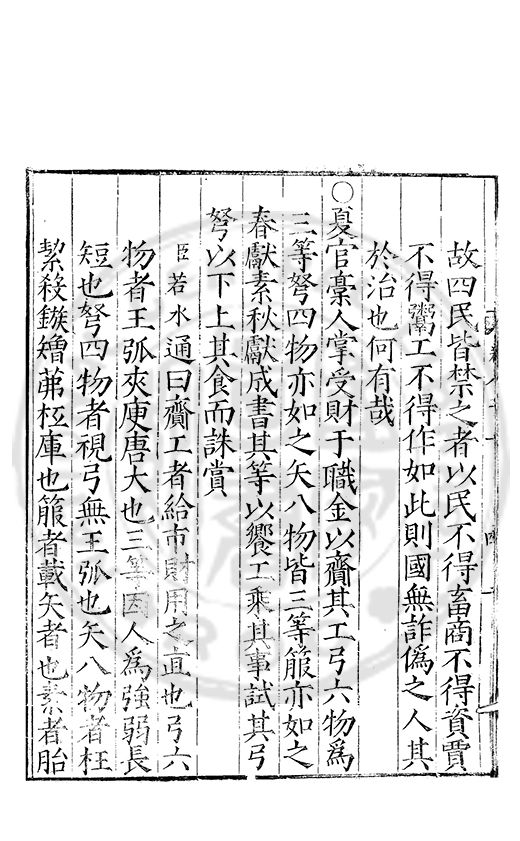 故四民皆禁之者以民不得畜商不得資賈
不得鬻工不得作如此則國無詐偽之人其
於治也何有哉
○夏官槀人掌受財于職金以齎其工弓六物為
三等弩四物亦如之矢八物皆三等箙亦如之
春獻素秋獻成書其等以饗工乘其事試其弓
弩以下上其食而誅賞
臣若水通曰齎工者給市財用之直也弓六
物者王弧夾庾唐大也三等因人為強弱長
短也弩四物者視弓無王弧也矢八物者枉
絜殺鍭矰茀恒庳也箙者載矢者也素者胎